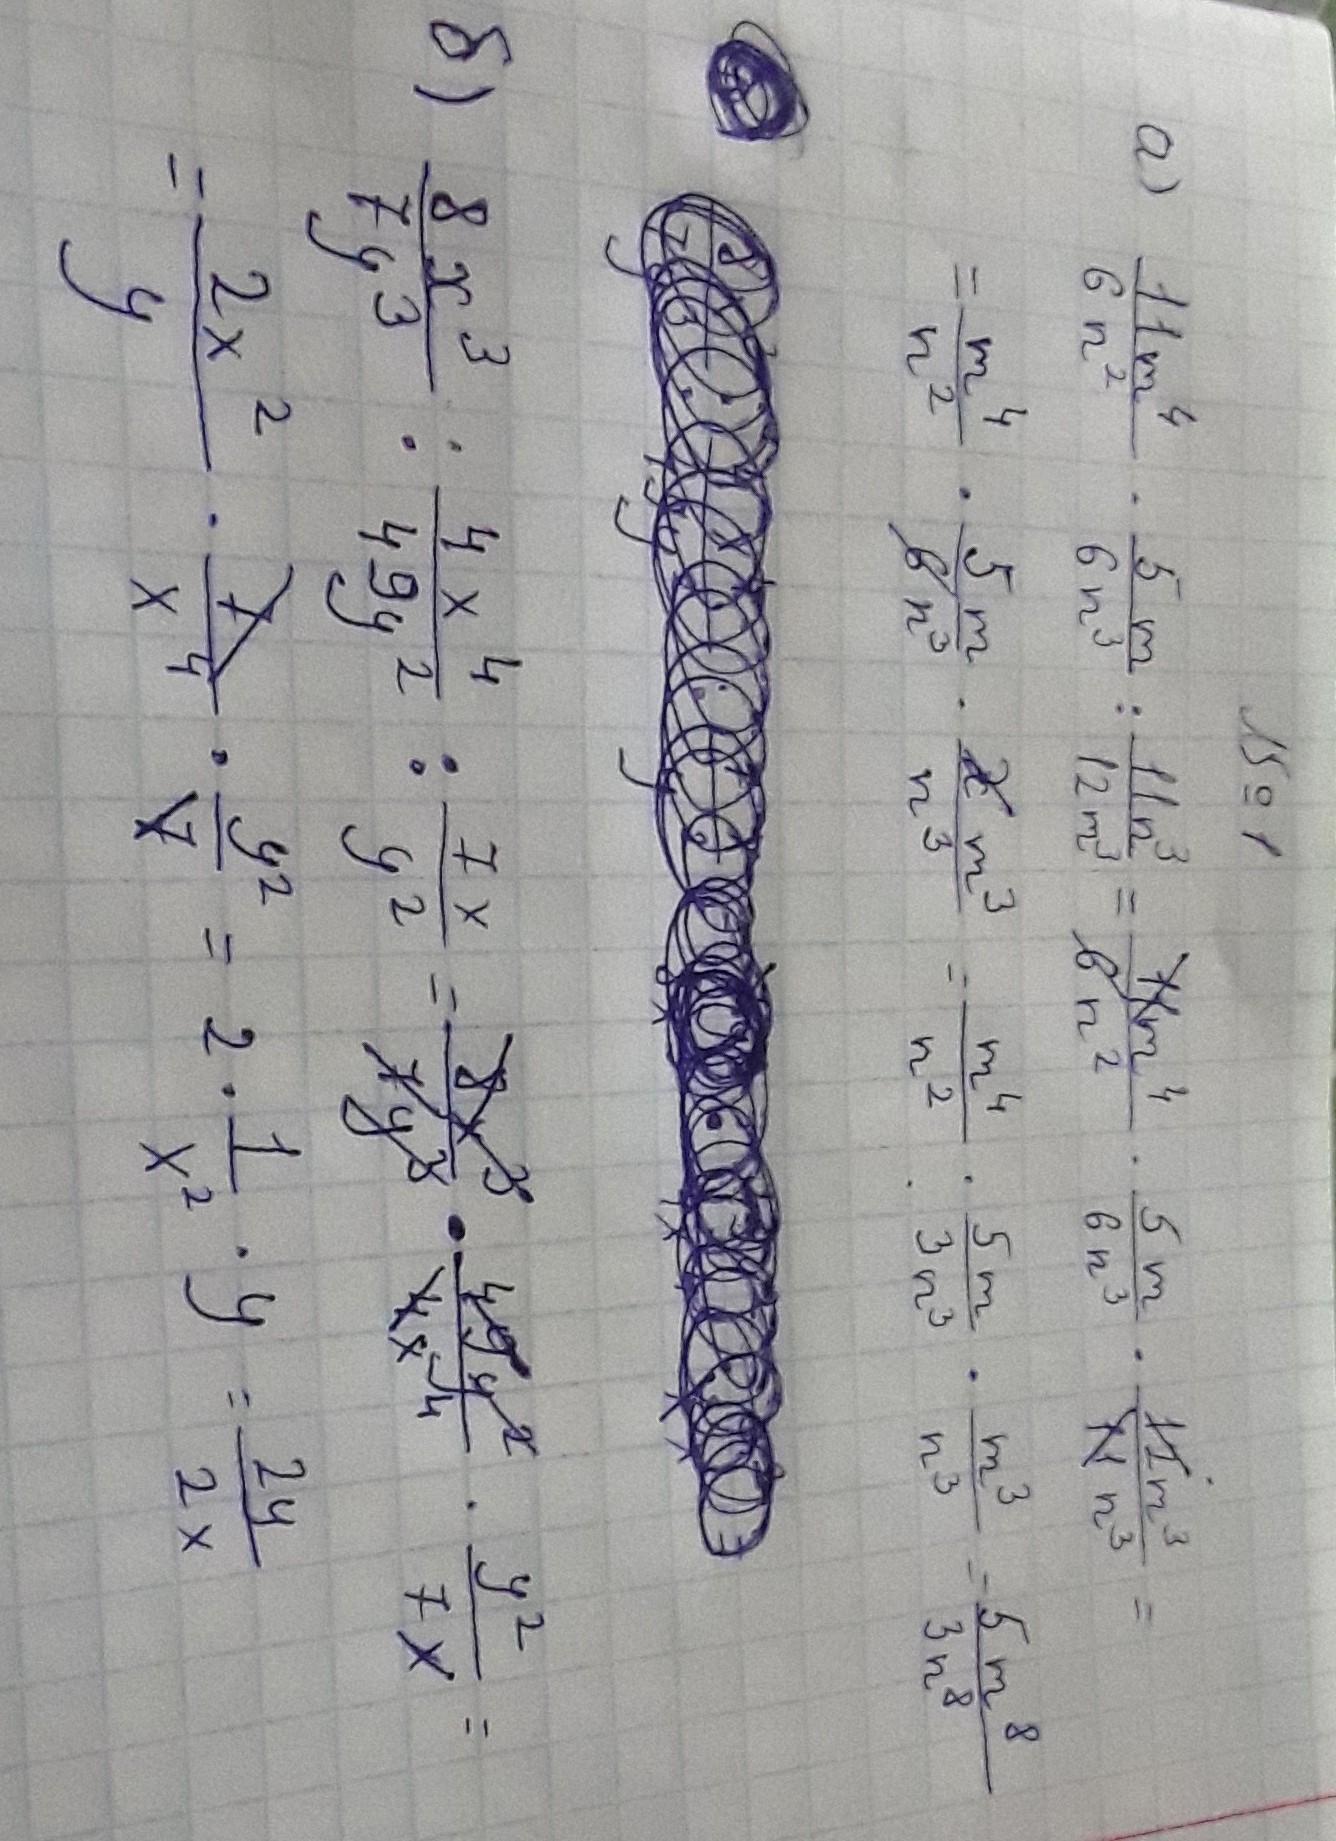 №1
а) 11m⁴/6n² · 5m/6n³ : 11n³/12m³ = 11m⁴/6n² · 5m/6n³ · 12m³/11n³ =
= m⁴/n² · 5m/6n³ · 2m³/n³ = m⁴/n² · 5m/3n³ · m³/n³ = 5m⁸/3n⁸
б) 8x³/7y³ : 4x⁴/49y² : 7x/y² = 8x³/7y³ · 49y²/4x⁴ · y²/7x =
= 2x²/y · 7/x⁴ · y²/7 = 2 · 1/x² · y = 2y/2x